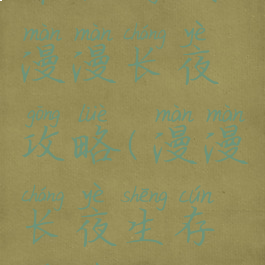 màn màn cháng yè
漫漫长夜
gōng lüè màn màn
攻略(漫漫
cháng yè shēng cún
长夜生存